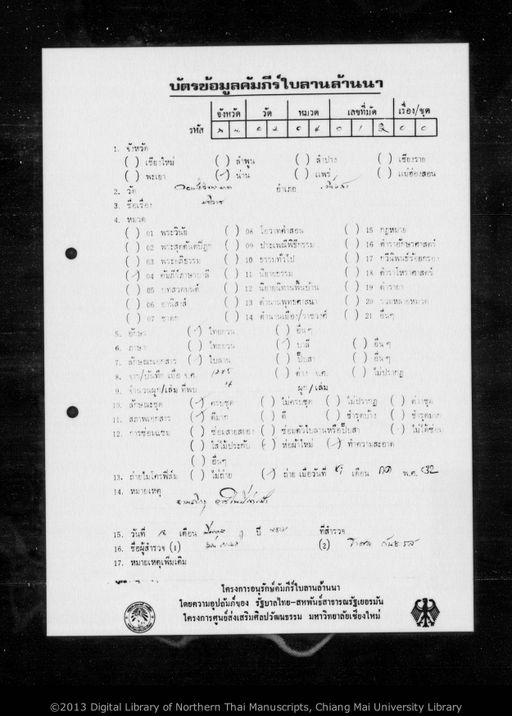 บัตรข้อมูลคัมภีร์ใบลานล้านนา
จังหวัด วัด หมวด เลขที่มัด เรื่อง/ชุด
รหัส
1. จังหวัด
( ) เชียงใหม่ ( ) ลำพูน ( ) ลำปาง ( ) เชียงราย
( ) พะเยา (✓) น่าน ( ) แพร่ ( ) แม่ฮ่องสอน
2. วัด อำเภอ
3. ชื่อเรื่อง
4. หมวด
( ) 01 พระวินัย ( ) 08 โอวาทคำสอน ( ) 15 กฎหมาย
( ) 02 พระสุตตันตปิฎก ( ) 09 ประเพณีพิธีกรรม ( ) 16 ตำราอักษรศาสตร์
( ) 03 พระอภิธรรม ( ) 10 ธรรมทั่วไป ( ) 17 กวีนิพนธ์ร้อยกรอง
(✓) 04 คัมภีร์ภาษาบาลี ( ) 11 นิยายธรรม ( ) 18 ตำราโหราศาสตร์
( ) 05 บทสวดมนต์ ( ) 12 นิยายนิทานพื้นบ้าน ( ) 19 ตำรายา
( ) 06 อานิสงส์ ( ) 13 ตำนานพุทธศาสนา ( ) 20 รวมหลายหมวด
( ) 07 ชาดก ( ) 14 ตำนานเมือง/ราชวงศ์ ( ) 21 อื่นๆ
5. อักษร (✓) ไทยยวน ( ) อื่นๆ
6. ภาษา ( ) ไทยยวน ( ) บาลี ( ) อื่นๆ
7. ลักษณะเอกสาร (✓) ใบลาน ( ) ปั๊บสา ( ) อื่นๆ
8. จาร/บันทึก เมื่อ จ.ศ. ( ) ค่าง จ.ศ. ( ) ไม่ปรากฏ
9. จำนวนผูก/เล่ม ที่พบ ผูก/เล่ม
10. ลักษณะชุด (✓) ครบชุด ( ) ไม่ครบชุด ( ) ไม่ปรากฏ ( ) ค่าชุด
11. สภาพเอกสาร (✓) ดีมาก ( ) ดี ( ) ชำรุดบ้าง ( ) ชำรุดมาก
12. การซ่อมแซม ( ) ซ่อมสายสยอง ( ) ซ่อมตัวใบลานหรือปั๊บสา ( ) ไม่ได้ซ่อม
( ) ใส่ไม้ประกับ ( ) ห่อผ้าใหม่ (✓) ทำความสะอาด
( ) อื่นๆ
13. ถ่ายไมโครฟิล์ม ( ) ไม่ถ่าย (✓) ถ่าย เมื่อวันที่ เดือน พ.ศ. 32
14. หมายเหตุ
15. วันที่ เดือน ปี ที่สำรวจ
16. ชื่อผู้สำรวจ (1) (2)
17. หมายเหตุเพิ่มเติม
โครงการอนุรักษ์คัมภีร์ใบลานล้านนา
โดยความอุปถัมภ์ของ รัฐบาลไทย-สหพันธ์สาธารณรัฐเยอรมัน
โครงการศูนย์ส่งเสริมศิลปวัฒนธรรม มหาวิทยาลัยเชียงใหม่
©2013 Digital Library of Northern Thai Manuscripts, Chiang Mai University Library